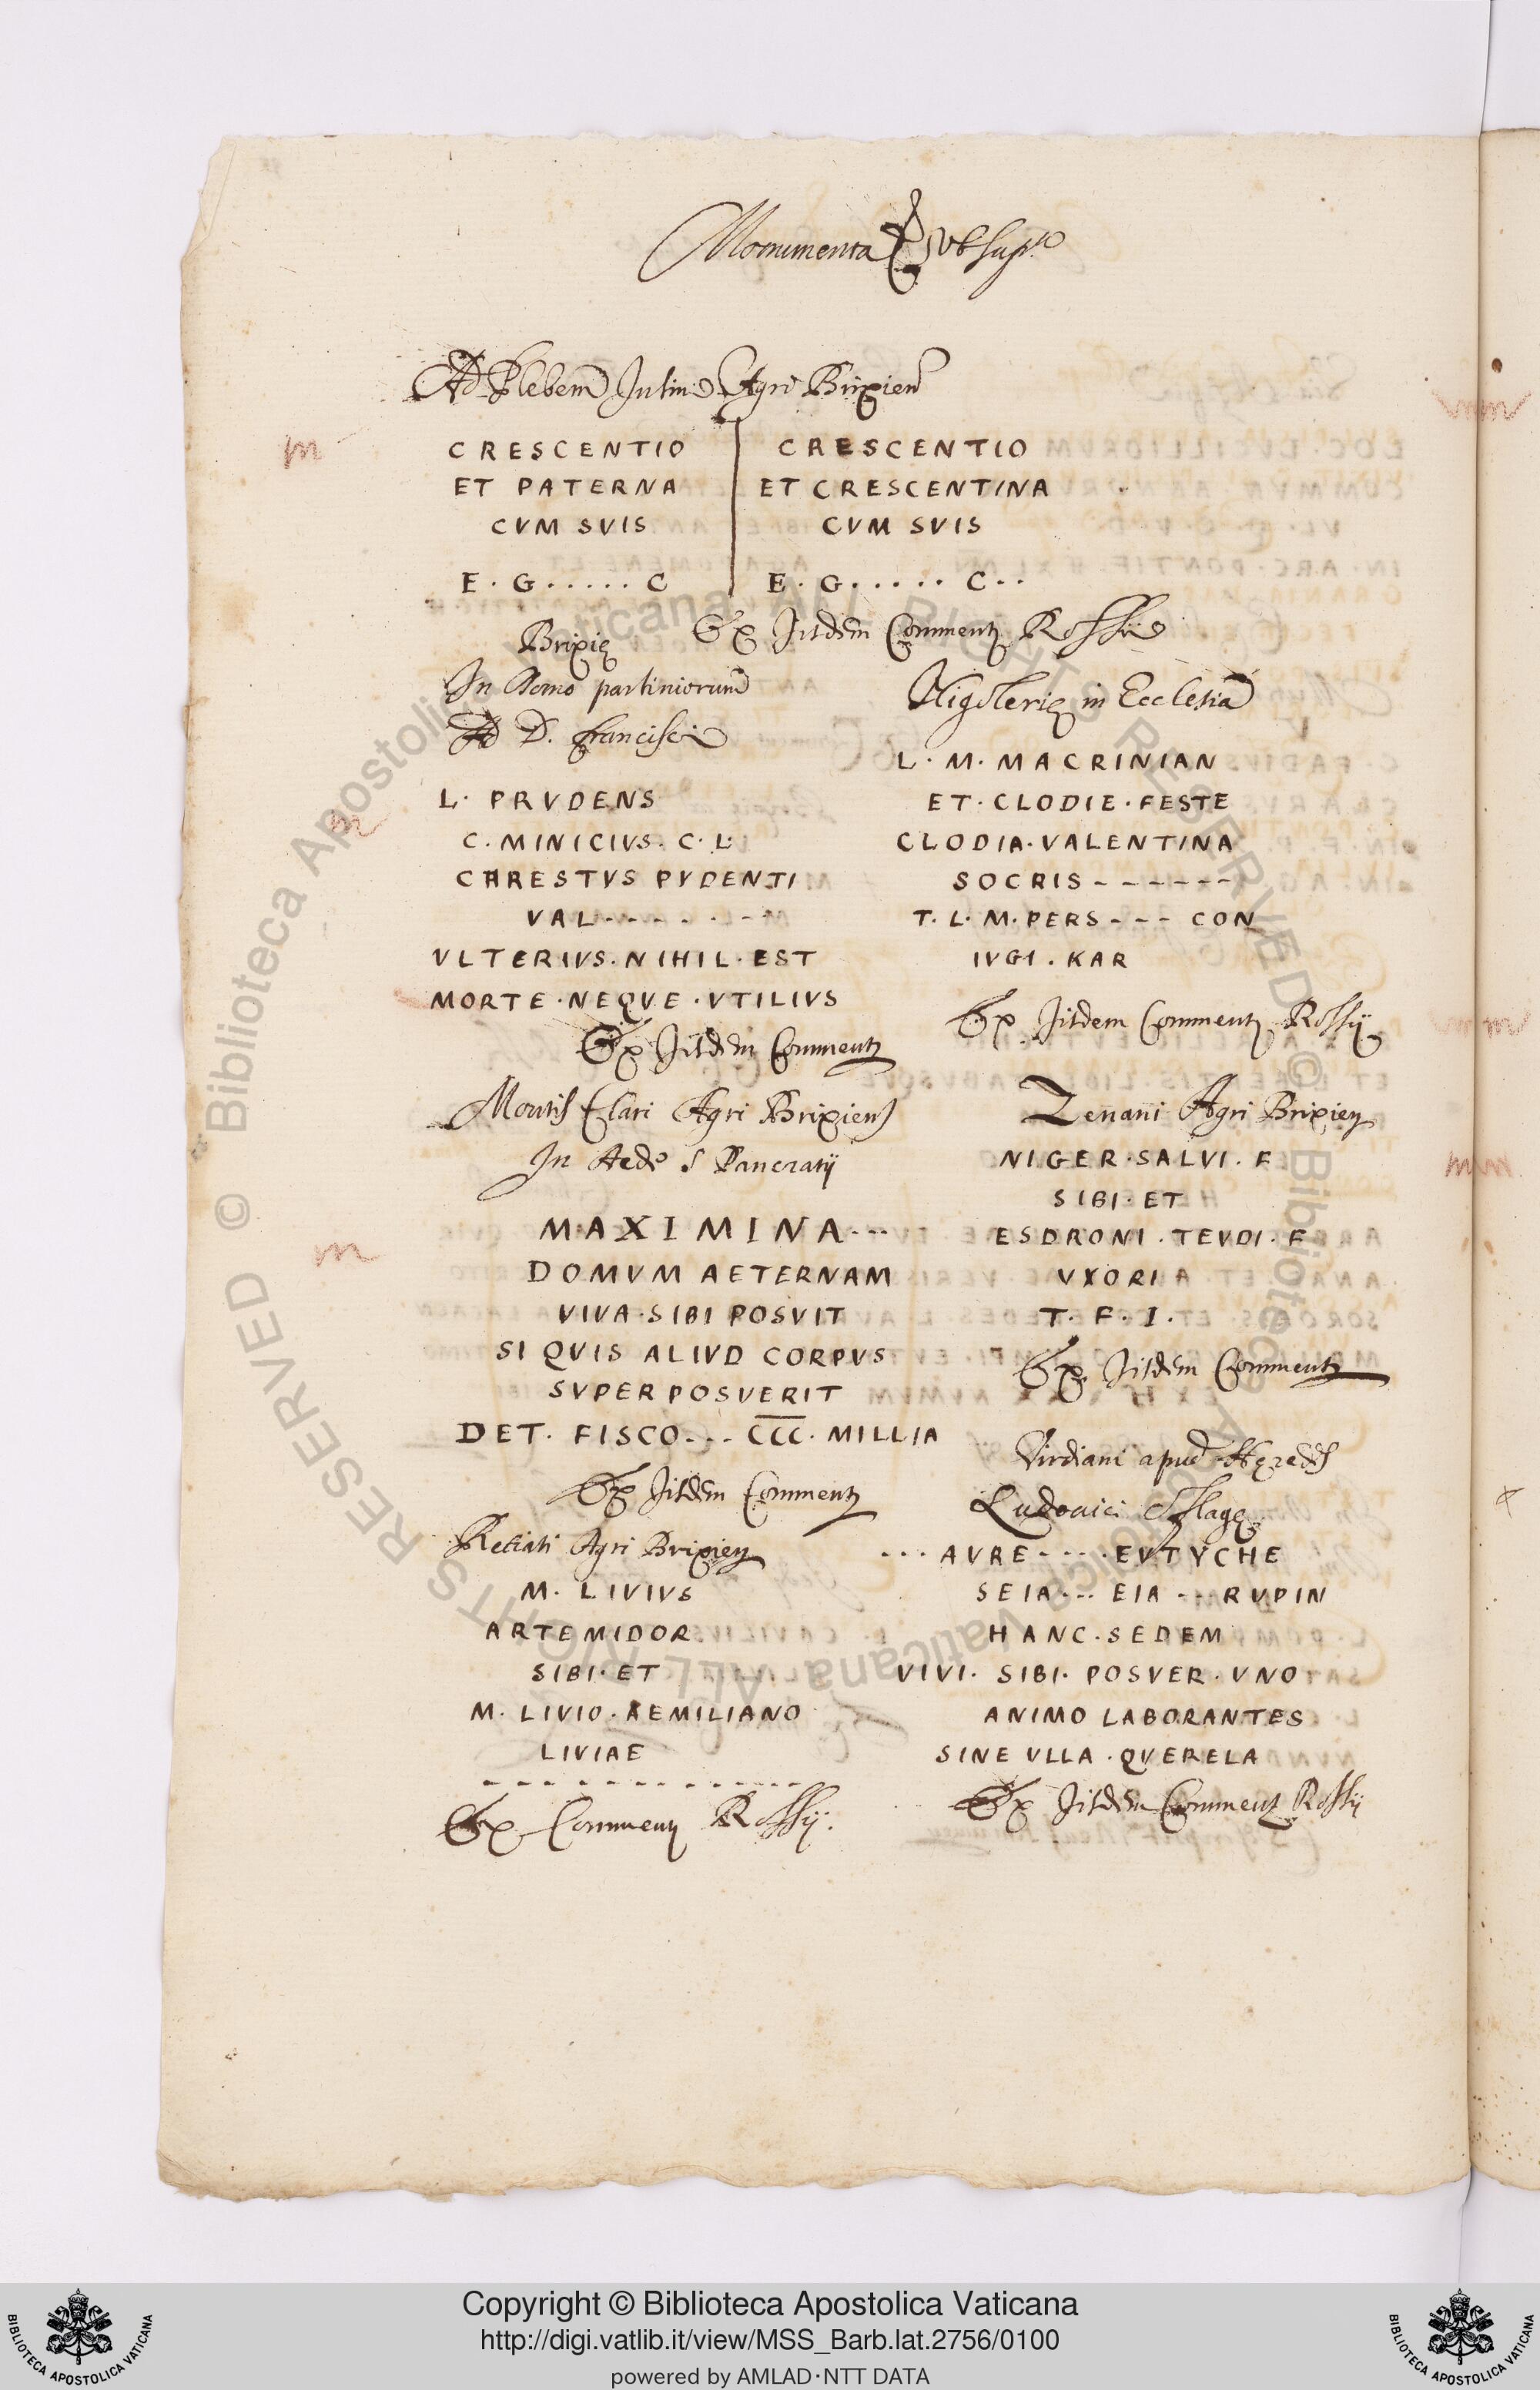 Monumenta
Ad Plebem Agri Brixien
CRESCENTIO
ET PATERNA
CVM SVIS
E. G. . . . . . C
CRESCENTIO
ET CRESCENTINA
CVM SVIS
E. G. . . . . . C . .
Ex Jisdem Comment Rossii
Brixię
In domo partiniorum
Ad D. Francisci
L. PRVDENS
C. MINICIVS. C. L.
CHRESTVS PVDENTI
VAL - - - - - - -
VLTERIVS. NIHIL. EST
MORTE. NEQVE. VTILIVS
Ex Jisdem Comment
Montis Clari Agri Brixiens
In Aede S Pancratij
MAXIMINA ---
DOMVM AETERNAM
VIVA. SIBI POSVIT
SI QVIS ALIVD CORPVS
SVPERPOSVERIT
DET. FISCO - - - CCC. MILLIA
Ex Jisdem Comment
Retiati Agri Brixien
M. LIVIVS
ARTEMIDOR
SIBI. ET
M. LIVIO. AEMILIANO
LIVIAE
- - - - - - - - - - - - -
Ex Comment Rossij.
Nigolerię in Ecclesia
L. M. MACRINIAN
ET. CLODIE. FESTE
CLODIA. VALENTINA
SOCRIS - - - - - - -
T. L. M. PERS - - - CON
IVGI. KAR
Ex Jisdem Comment Rossij
Zenani Agri Brixien
NIGER. SALVI. F
SIBI. ET
ESDRONI. TEVDI. F
VXORI
T. F. I.
Ex Jisdem Comment
Virdiani apud Hęredes
Ludovici
. . . AVRE - - - . EVTYCHE
SEIA --- EIA --- RVPIN
HANC. SEDEM
VIVI. SIBI. POSVER. VNO
ANIMO LABORANTES
SINE VLLA. QVERELA
Ex Jisdem Comment Rossij
Copyright © Biblioteca Apostolica Vaticana
http://digi.vatlib.it/view/MSS_Barb.lat.2756/0100
powered by AMLAD·NTT DATA
BIBLIOTECA APOSTOLICA VATICANA
BIBLIOTECA APOSTOLICA VATICANA